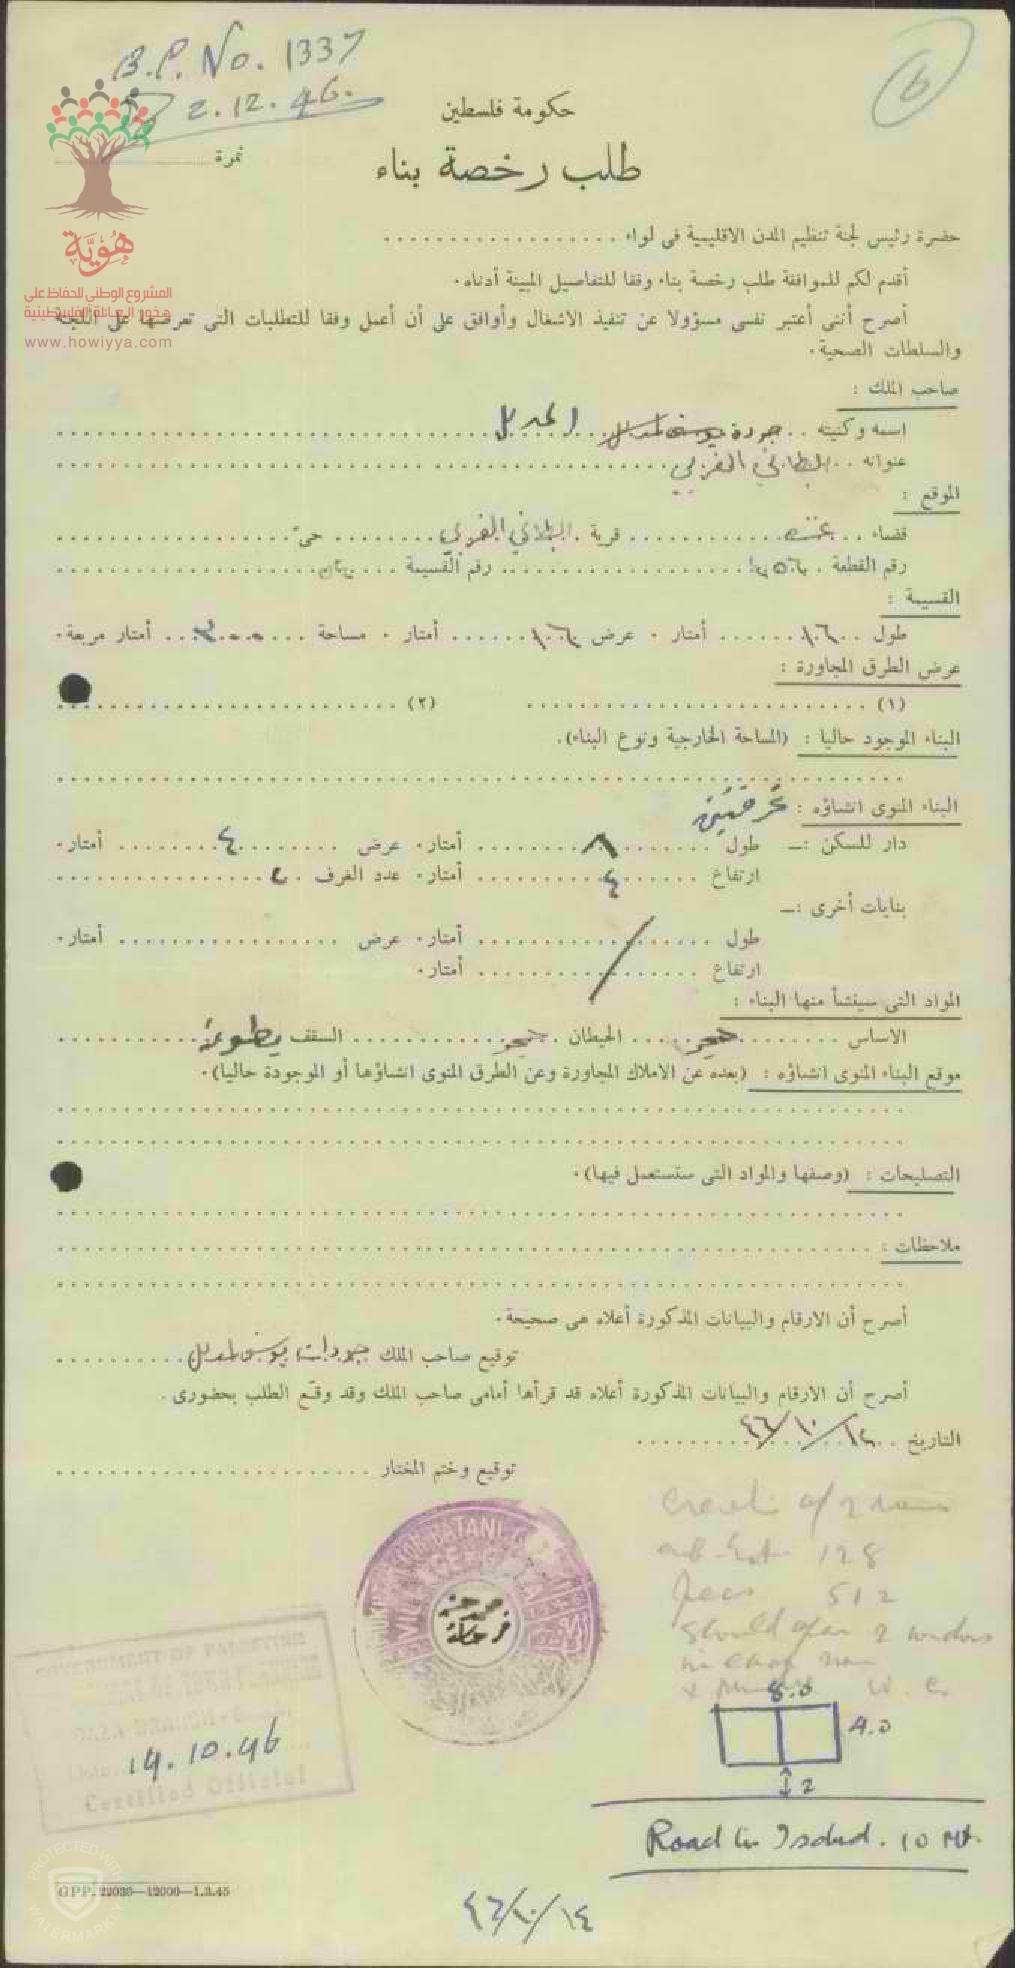 B.P. No. 1337
2.12.46.
6
حكومة فلسطين
نمرة
طلب رخصة بناء
هُوِيَّة
المشروع الوطني للحفاظ على
جذور العائلة الفلسطينية
www.howiyya.com
حضرة رئيس لجنة تنظيم المدن الاقليمية فى لواء
أقدم لكم للموافقة طلب رخصة بناء وفقا للتفاصيل المبينة أدناه.
أصرح أننى أعتبر نفسى مسؤولا عن تنفيذ الاشغال وأوافق على أن أعمل وفقا للتطلبات التى تعرضها على اللجنة
والسلطات الصحية.
صاحب الملك :
اسمه وكنيته .. جودة
عنوانه .. البطاني الغربي
الموقع :
قضاء .. غزة قرية . البطاني الغربي حى
رقم القطعة رقم القسيمة
القسيمة :
طول أمتار . عرض أمتار . مساحة أمتار مربعة.
عرض الطرق المجاورة :
(١) (٢)
البناء الموجود حاليا : (المساحة الخارجية ونوع البناء).
البناء المنوى انشاؤه : غرفتين
دار للسكن :— طول ٨ أمتار. عرض ٤ أمتار.
ارتفاع ٤ أمتار. عدد الغرف ٢
بنايات أخرى :—
طول أمتار. عرض أمتار.
ارتفاع أمتار.
المواد التى سينشأ منها البناء :
الاساس حجر الحيطان . حجر السقف
موقع البناء المنوى انشاؤه : (بعده عن الاملاك المجاورة وعن الطرق المنوى انشاؤها أو الموجودة حاليا).
التصليحات : (وصفها والمواد التى ستستعمل فيها).
ملاحظات :
أصرح أن الارقام والبيانات المذكورة أعلاه هى صحيحة.
توقيع صاحب الملك
أصرح أن الارقام والبيانات المذكورة أعلاه قد قرأها أمامى صاحب الملك وقد وقّع الطلب بحضورى .
التاريخ ٤٦/١٠/١٤
توقيع وختم المختار
of 2
128
fees 512
Should 2 windows
in each
W.C.
BATANI
VILLAGE - GAZA
GOVERNMENT OF PALESTINE
GAZA BRANCH
Date 14.10.46
Certified Official
8.0
4.0
2
Road to Isdud. 10 Mt.
GPP. 22030—12000—1.3.45
٤٦/١٠/١٤
PROTECTED WITH
WATERMARKLY